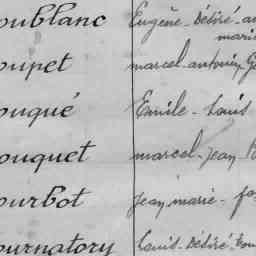 oublanc Eugène-Désiré-
oupet marcel-antonin
ouqué Emile-Louis
ouquet marcel-Jean
ourbot Jean marie-
ournatory Louis-Désiré